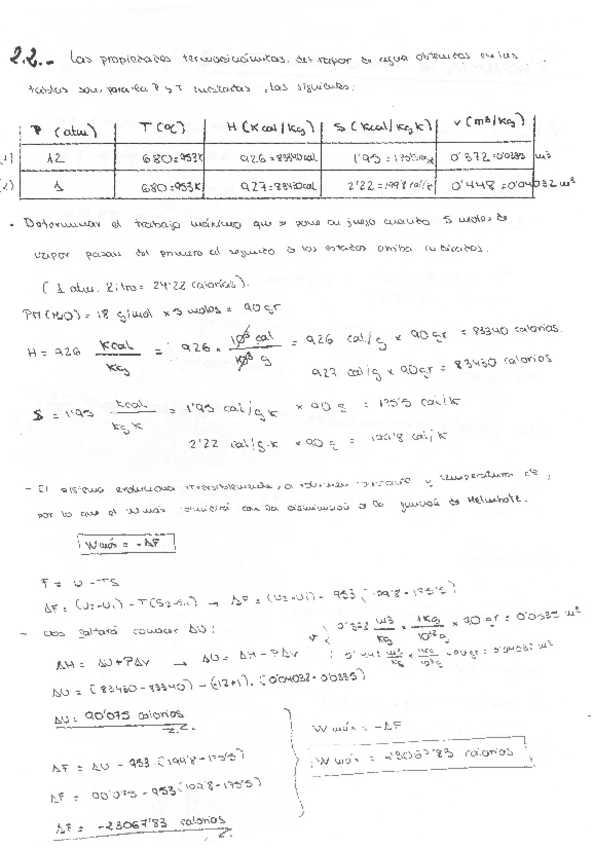 2.2.- Las propiedades termodinámicas del vapor de agua obtenidas en las
tablas son, para la P y T indicadas, las siguientes:
P (atm) T (ºC) H (Kcal/kg) S (Kcal/kg K) V (m3/kg)
(1) 12 680=953K 926=83340cal 1'95=175'5 0'372=0'0335 m3
(2) 1 680=953K 927=83430cal 2'22=199'8 cal/k 0'448=0'04032 m3
- Determinar el trabajo máximo que se pone en juego cuando 5 moles de
vapor pasan del primero al segundo de los estados arriba indicados.
(1 atm. litro = 24'22 calorías).
PM (H2O) = 18 g/mol x 5 moles = 90 gr
H = 926 Kcal/Kg = 926 · 10³ cal/10³ g = 926 cal/g x 90 gr = 83340 calorias.
927 cal/g x 90 gr = 83430 calorias
S = 1'95 kcal/kg K = 1'95 cal/g K x 90 g = 175'5 cal/K
2'22 cal/g·K x 90 g = 199'8 cal/K
- El sistema evoluciona irreversiblemente, a volumen y temperatura
por lo que el W máx coincidirá con la disminución de la función de Helmholtz.
W máx = -ΔF
F = U - TS
ΔF = (U2-U1) - T(S2-S1) → ΔF = (U2-U1) - 953 (199'8-175'5)
- Nos faltará conocer ΔU:
ΔH = ΔU + PΔV → ΔU = ΔH - PΔV
ΔU = (83430-83340) - (-12+1) · (0'04032-0'0335)
ΔU = 90'075 calorias
ΔF = ΔU - 953 (199'8-175'5)
ΔF = 90'075 - 953 (199'8-175'5)
ΔF = -23067'83 calorias
W máx = -ΔF
W máx = 23067'83 calorias